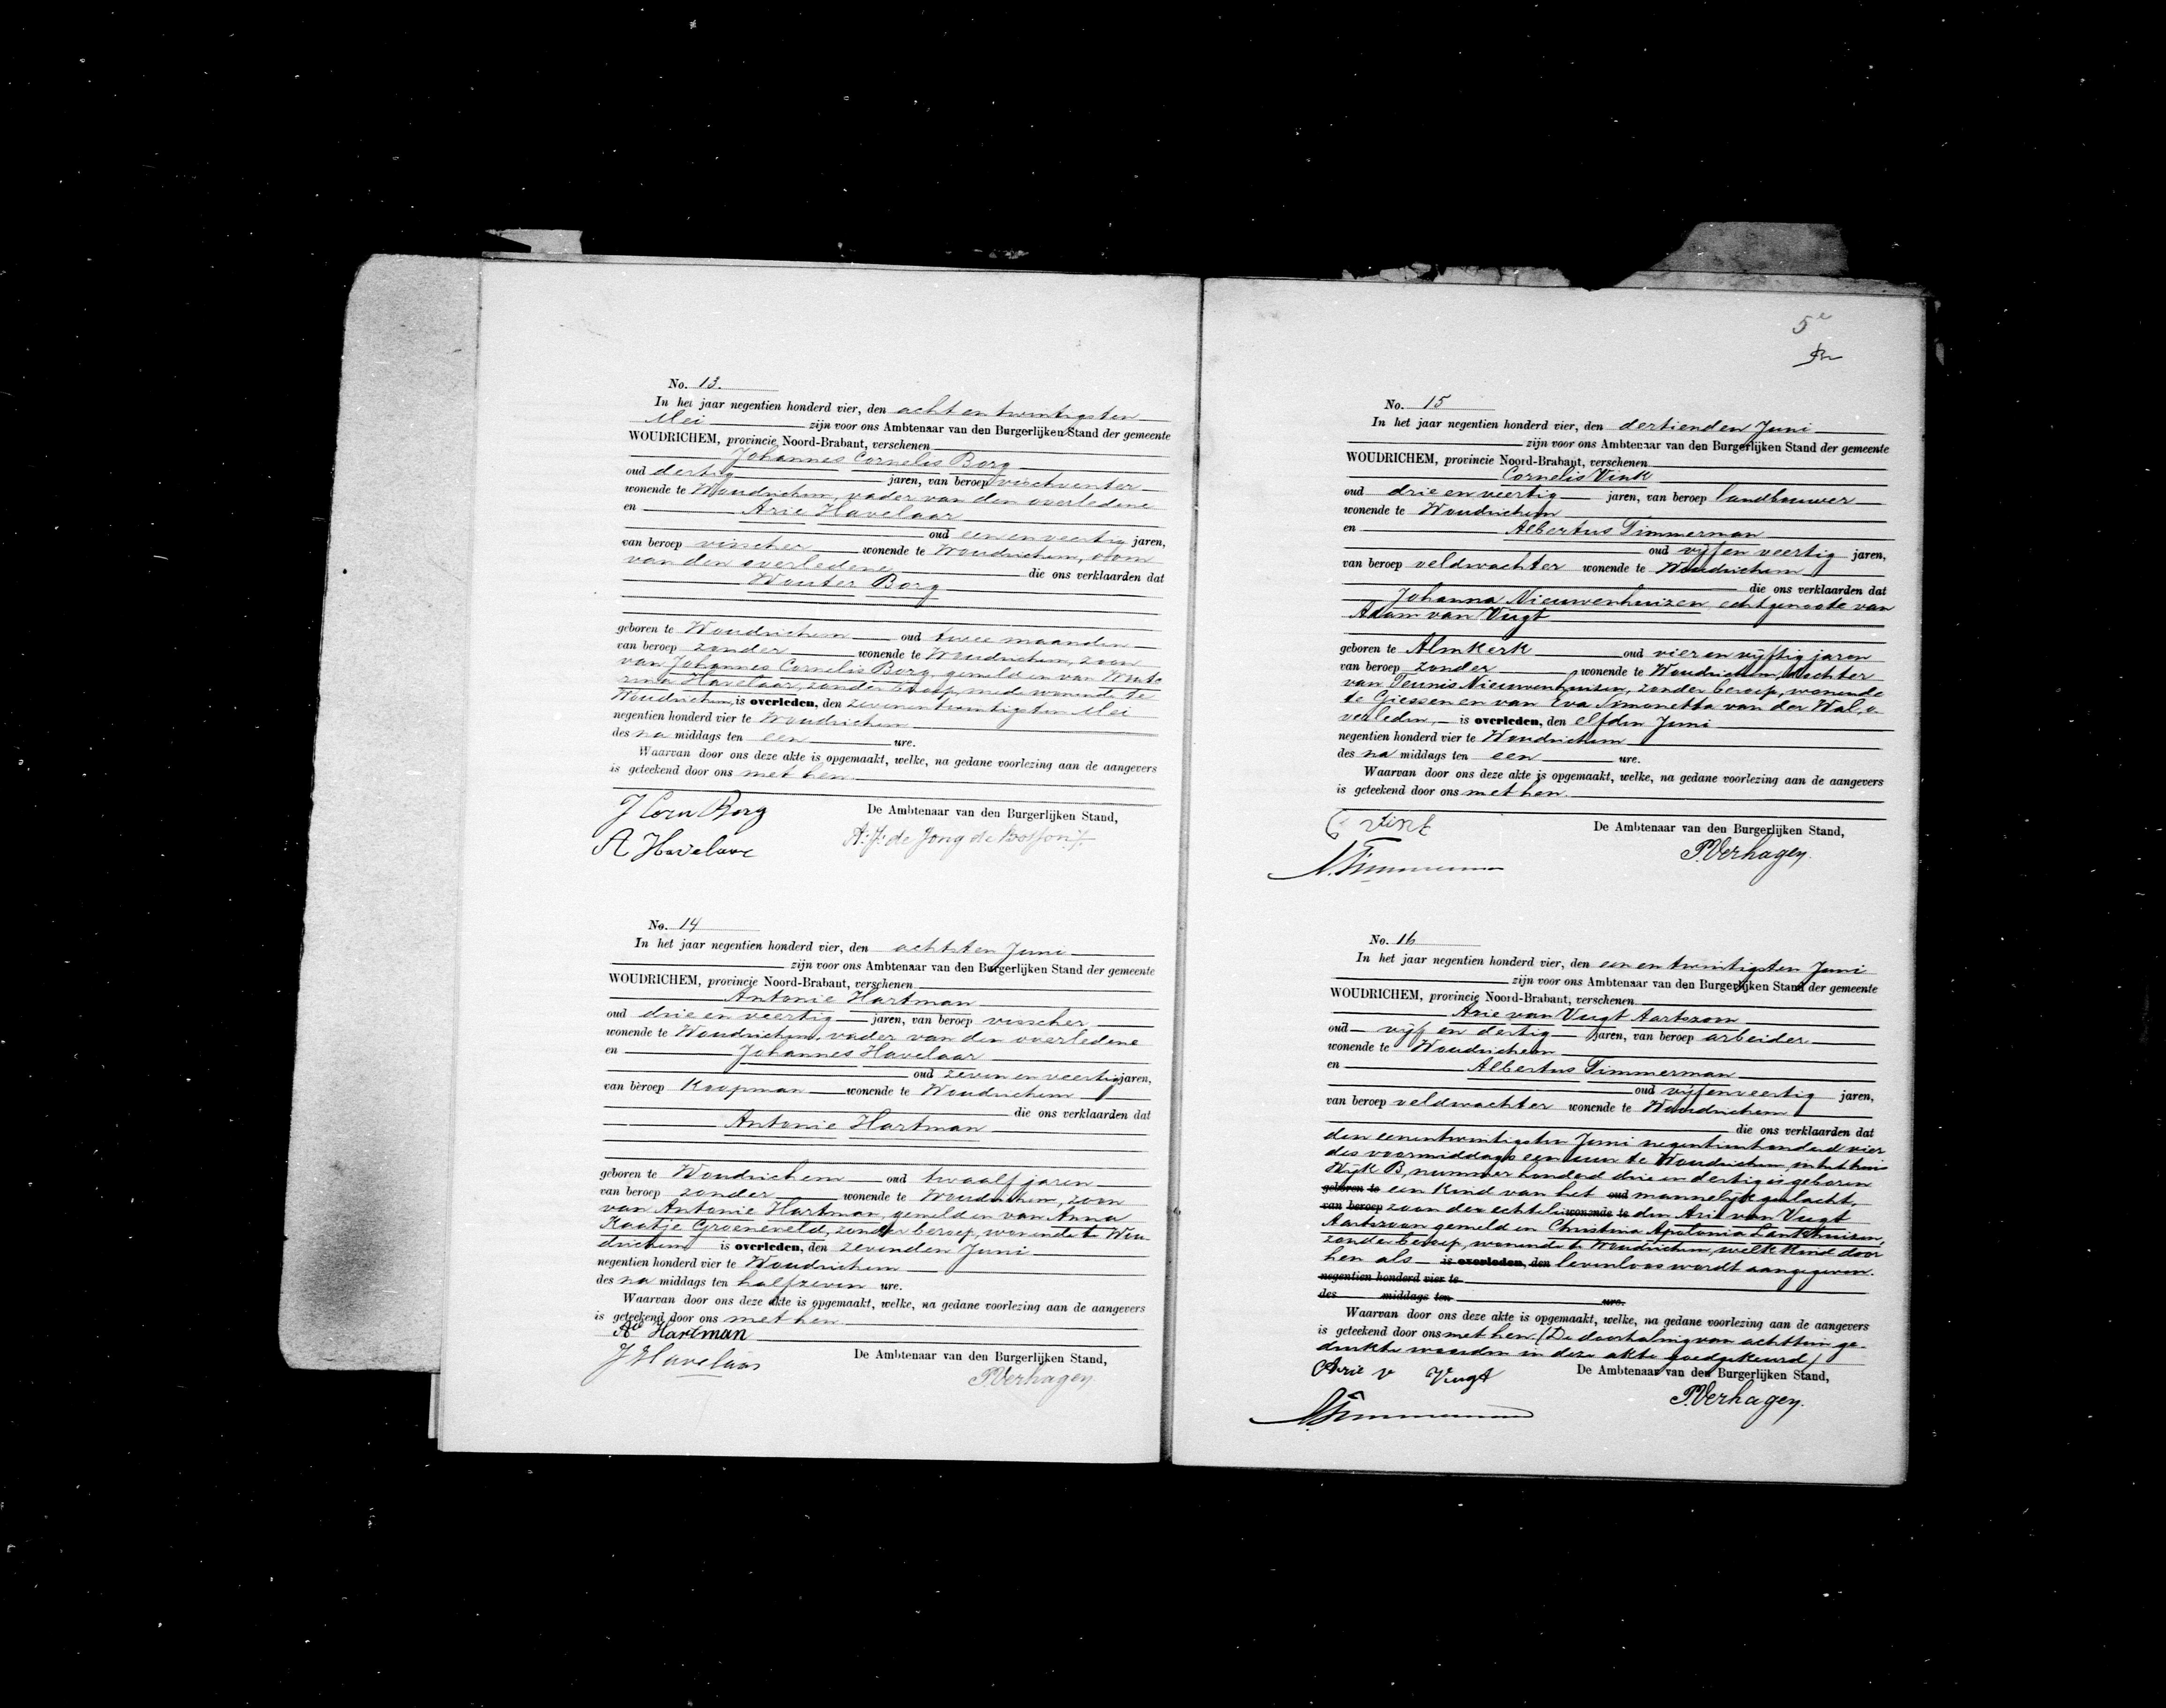 No. 13.
In het jaar negentien honderd vier, den acht en twintigsten
Mei zijn voor ons Ambtenaar van den Burgerlijken Stand der gemeente
WOUDRICHEM, provincie Noord-Brabant, verschenen
Johannes Cornelis Borg
oud dertig jaren, van beroep vischventer
wonende te Woudrichem, vader van den overledene
en Arie Havelaar
oud een en veertig jaren,
van beroep visscher wonende te Woudrichem, oom
van den overledene die ons verklaarden dat
Wouter Borg
geboren te Woudrichem oud twee maanden
van beroep zonder wonende te Woudrichem, zoon
van Johannes Cornelis Borg, gemeld en van Woute
rina Havelaar, zonder beroep, mede wonende te
Woudrichem, is overleden, den zevenentwintigsten Mei
negentien honderd vier te Woudrichem
des na middags ten een ure.
Waarvan door ons deze akte is opgemaakt, welke, na gedane voorlezing aan de aangevers
is geteekend door ons met hen.
J Corn Borg
De Ambtenaar van den Burgerlijken Stand,
A Havelaar
A. J. de Jong de
No. 14
In het jaar negentien honderd vier, den achtsten Juni
zijn voor ons Ambtenaar van den Burgerlijken Stand der gemeente
WOUDRICHEM, provincie Noord-Brabant, verschenen
Antonie Hartman
oud drie en veertig jaren, van beroep visscher
wonende te Woudrichem, vader van den overledene
en Johannes Havelaar
oud zeven en veertig jaren,
van beroep Koopman wonende te Woudrichem
die ons verklaarden dat
Antonie Hartman
geboren te Woudrichem oud twaalf jaren
van beroep zonder wonende te Woudrichem, zoon
van Antonie Hartman, gemeld en van Anna
Kaatje Groeneveld, zonder beroep, wonende te Wou
drichem is overleden, den zevenden Juni
negentien honderd vier te Woudrichem
des na middags ten halfzeven ure.
Waarvan door ons deze akte is opgemaakt, welke, na gedane voorlezing aan de aangevers
is geteekend door ons met hen
Ae Hartman
J Havelaar
De Ambtenaar van den Burgerlijken Stand,
P. Verhagen
5e
No. 15
In het jaar negentien honderd vier, den dertienden Juni
zijn voor ons Ambtenaar van den Burgerlijken Stand der gemeente
WOUDRICHEM, provincie Noord-Brabant, verschenen
Cornelis Vink
oud drie en veertig jaren, van beroep landbouwer
wonende te Woudrichem
en Albertus Timmerman
oud vijf en veertig jaren,
van beroep veldwachter wonende te Woudrichem
die ons verklaarden dat
Johanna Nieuwenhuizen echtgenoote van
Adam van Vugt
geboren te Almkerk oud vier en vijftig jaren
van beroep zonder wonende te Woudrichem, dochter
van Teunis Nieuwenhuizen, zonder beroep, wonende
te Giessen en van Eva Simonetta van der Wal, o-
verleden, is overleden, den elfden Juni
negentien honderd vier te Woudrichem
des na middags ten een ure.
Waarvan door ons deze akte is opgemaakt, welke, na gedane voorlezing aan de aangevers
is geteekend door ons met hen.
C. Vink
De Ambtenaar van den Burgerlijken Stand,
A. Timmerman
P. Verhagen.
No. 16
In het jaar negentien honderd vier, den een en twintigsten Juni
zijn voor ons Ambtenaar van den Burgerlijken Stand der gemeente
WOUDRICHEM, provincie Noord-Brabant, verschenen
Arie van Vugt Aartszoon
oud vijf en dertig jaren, van beroep arbeider
wonende te Woudrichem
en Albertus Timmerman
oud vijf en veertig jaren,
van beroep veldwachter wonende te Woudrichem
die ons verklaarden dat
den eenentwintigsten Juni negentienhonderd vier
des voormiddags een uur te Woudrichem, in het huis
Wijk B, nummer honderd drie en dertig is geboren
geboren te een kind van het oud mannelijk geslacht,
van beroep zoon der echtelie wonende te den Arie van Vugt
Aartszoon gemeld en Christina Apolonia Lankhuizen,
zonder beroep, wonende te Woudrichem, welk Kind door
hen als is overleden, den levenloos wordt aangegeven.
negentien honderd vier te
des middags ten ure.
Waarvan door ons deze akte is opgemaakt, welke, na gedane voorlezing aan de aangevers
is geteekend door ons met hen. (De doorhaling van achttien ge-
drukte woorden in deze akte goedgekeurd)
Arie v Vugt
De Ambtenaar van den Burgerlijken Stand,
A. Timmerman
P. Verhagen.